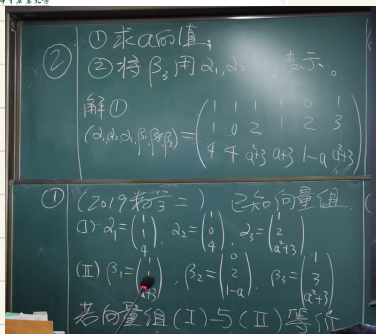 ② ① 求a的值;
② 将 β₃ 用 α₁, α₂, 表示。
解①
(α₁,α₂,α₃,β₁,β₂,β₃) = ( 1 1 1 1 0 1
1 0 2 1 2 3
4 4 a²+3 a+3 1-a a²+3 )
① (2019数学二) 已知向量组
(I) α₁ = (1 1 4), α₂ = (1 0 4), α₃ = (1 2 a²+3)
(II) β₁ = (1 1 a+3), β₂ = (0 2 1-a), β₃ = (1 3 a²+3)
若向量组(I)与(II)等价